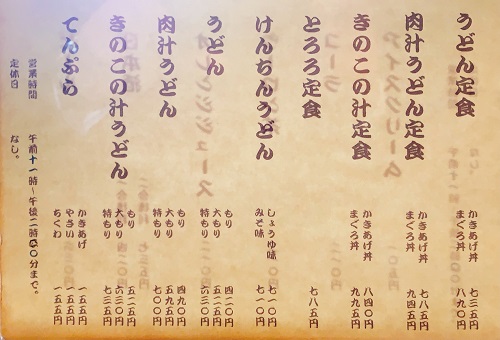 うどん定食
かきあげ丼 七三五円
まぐろ丼 八九〇円
肉汁うどん定食
かきあげ丼 七八五円
まぐろ丼 九四五円
きのこの汁定食
かきあげ丼 八四〇円
まぐろ丼 九九五円
とろろ定食
七八五円
けんちんうどん
しょうゆ味 七一〇円
みそ味 七一〇円
うどん
もり 四二〇円
大もり 五二五円
特もり 六三〇円
肉汁うどん
もり 四九〇円
大もり 五九五円
特もり 七〇〇円
きのこの汁うどん
もり 五二五円
大もり 六三〇円
特もり 七三五円
てんぷら
かきあげ 一五五円
やさい 一五五円
ちくわ 一五五円
営業時間 午前十一時〜午後二時〇〇分まで。
定休日 なし。